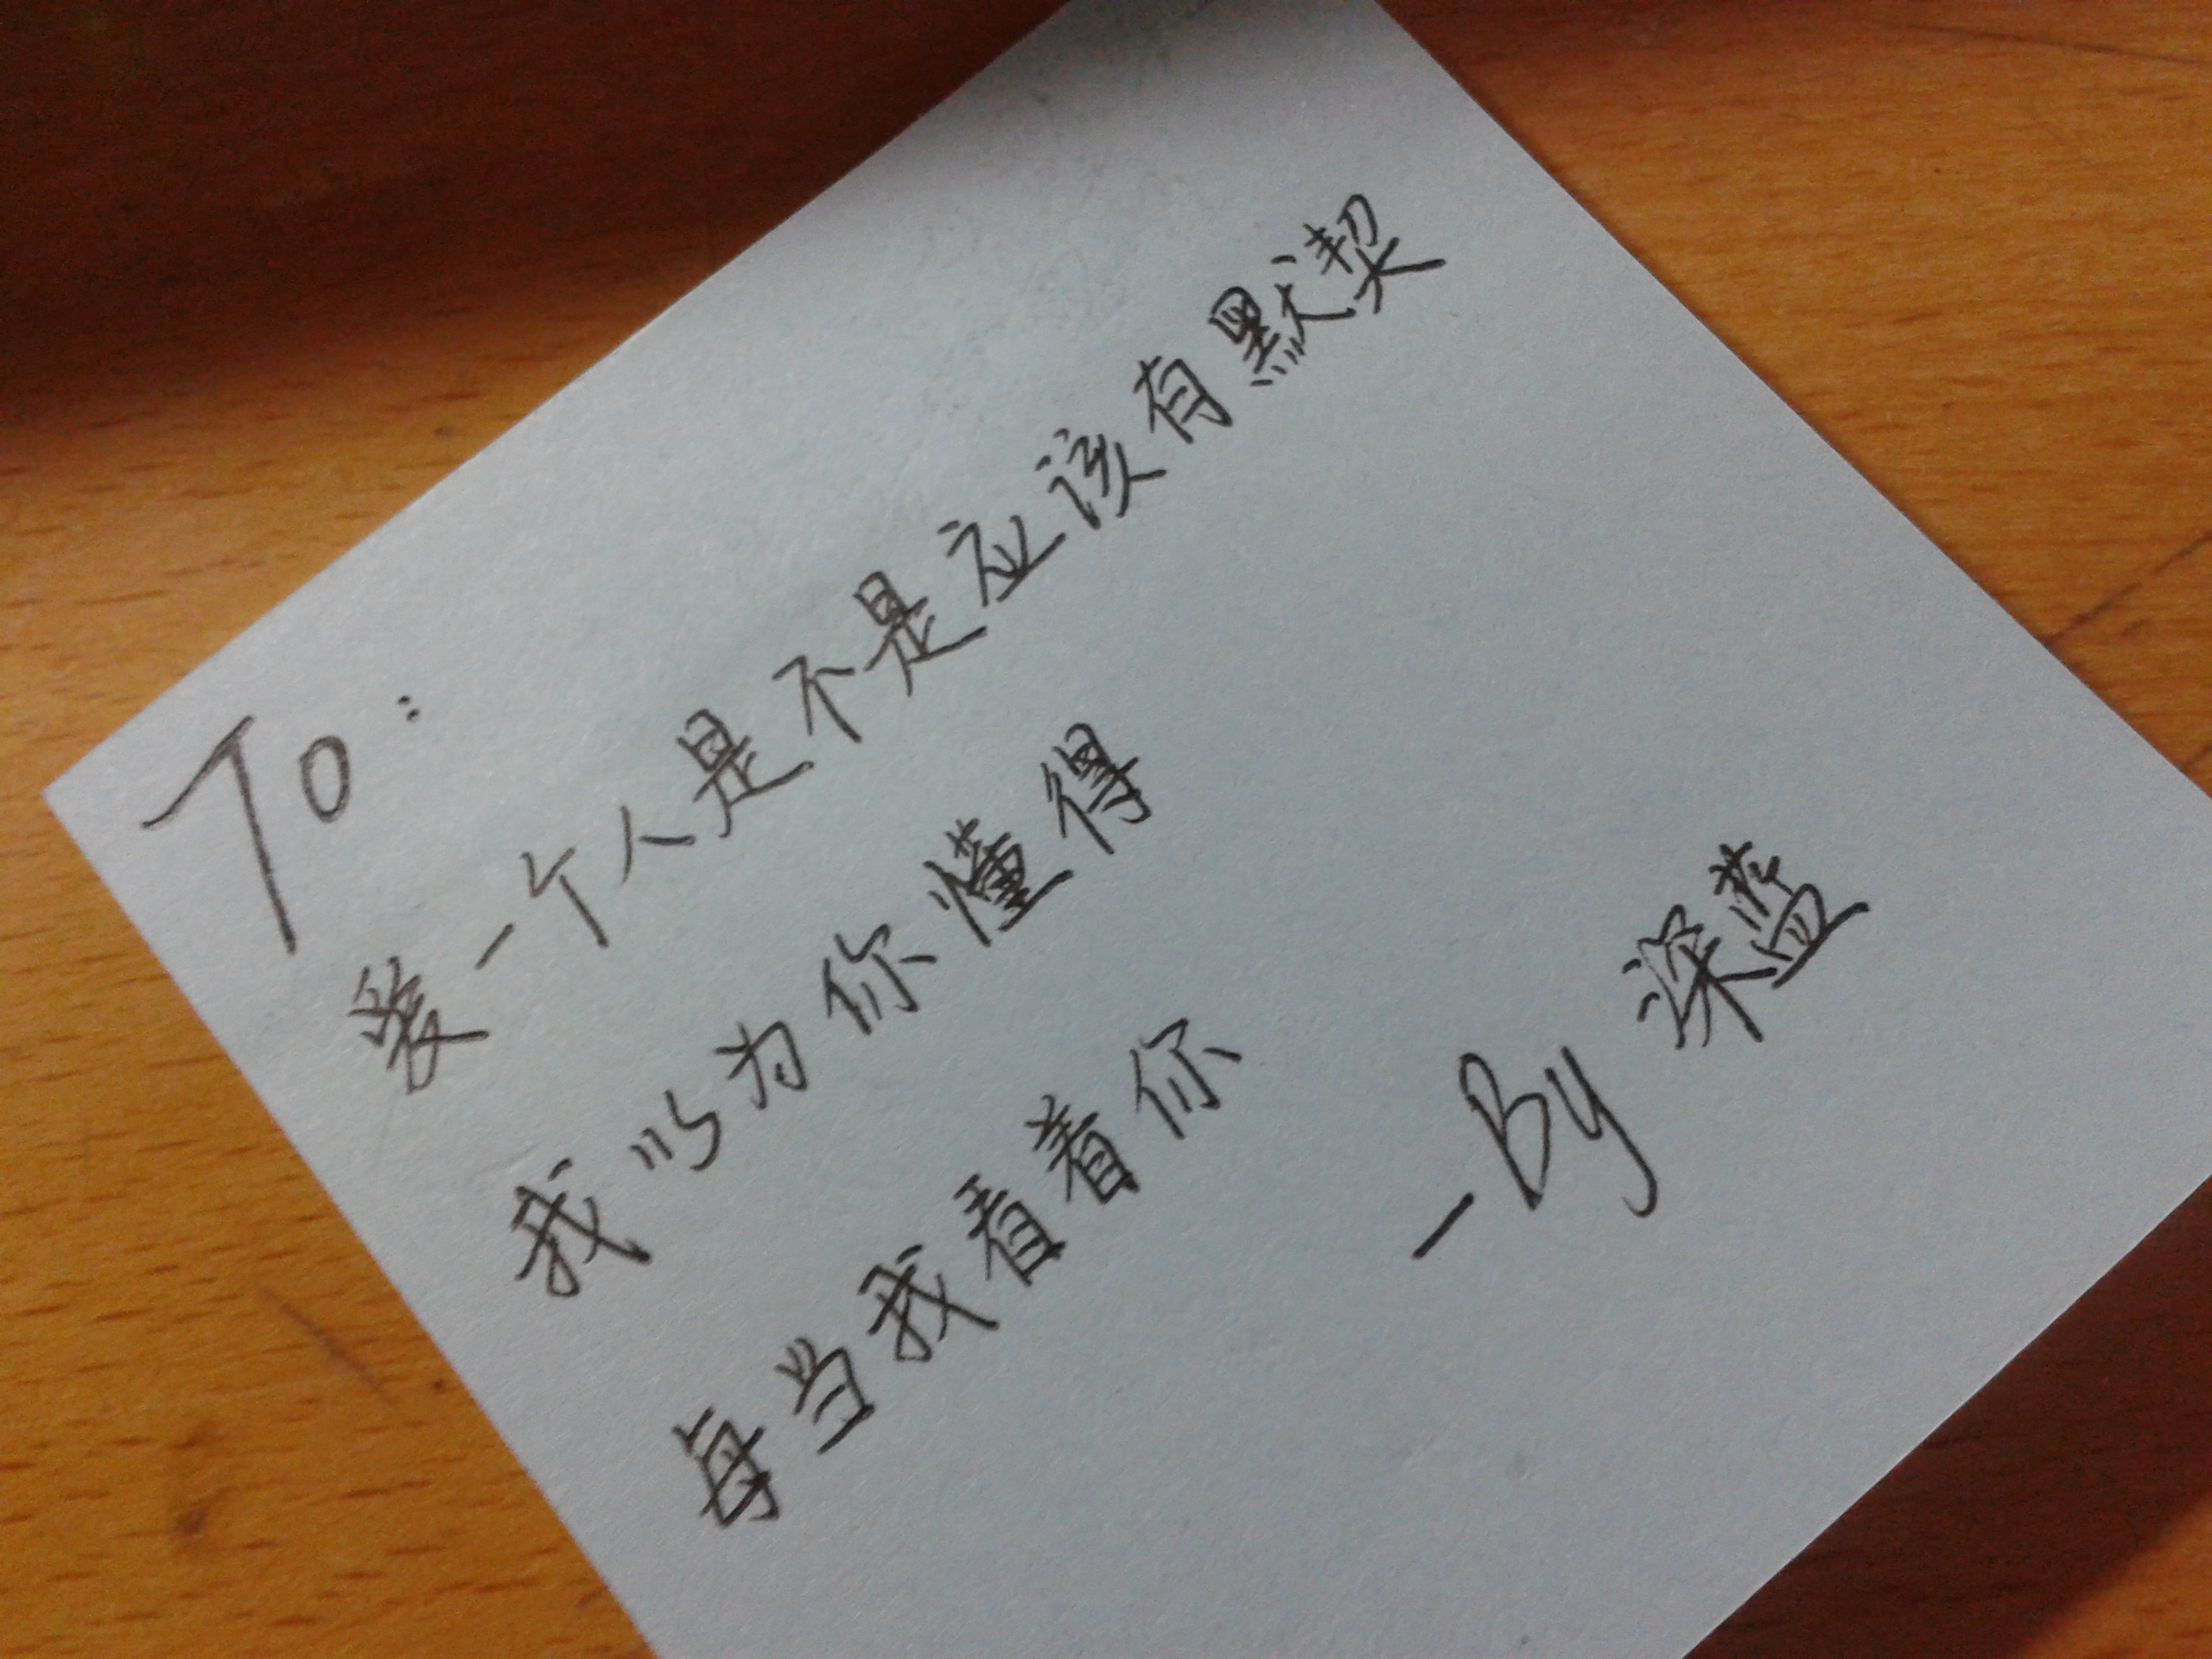 To:
爱一个人是不是应该有默契
我以为你懂得
每当我看着你
-By 深蓝